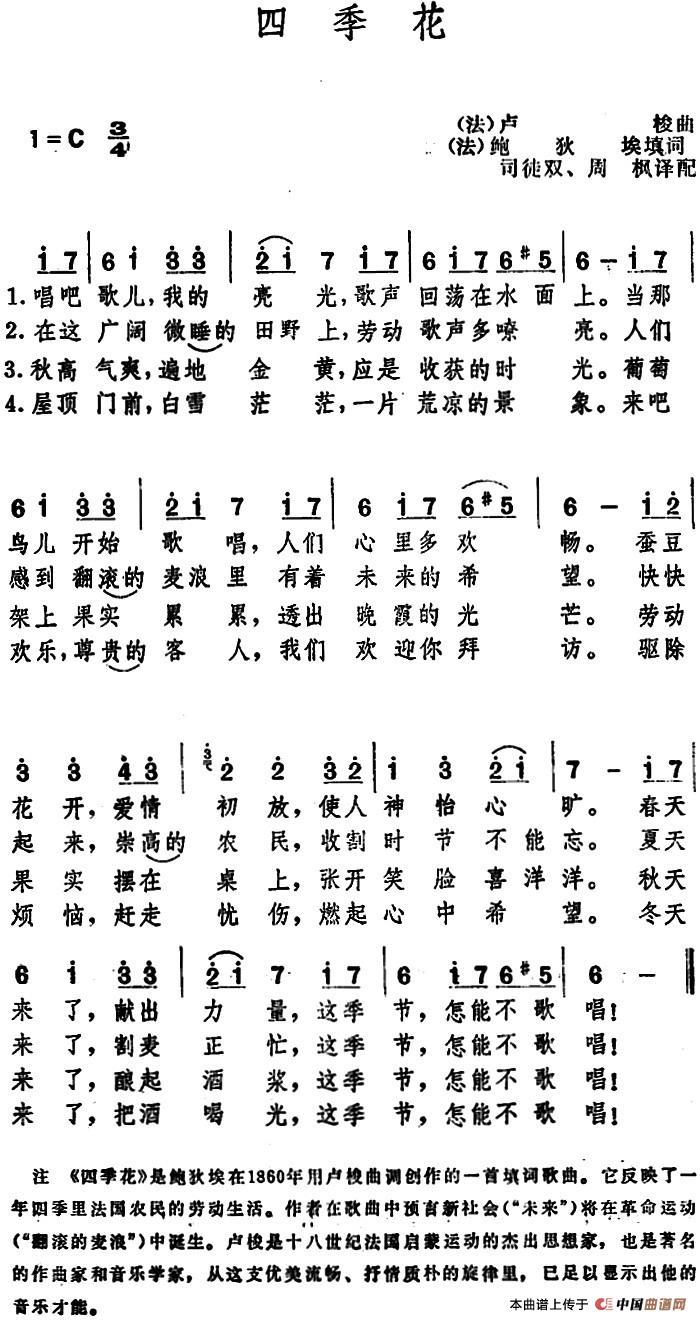 四季花
1=C 3/4
(法)卢梭曲
(法)鲍狄埃填词
司徒双、周枫译配
i 7 | 6 i 3̇ 3̇ | 2̇ i 7 i 7 | 6 i 7 6 #5 | 6 – i 7 |
1.唱吧歌儿,我的亮光,歌声回荡在水面上。当那
2.在这广阔微睡的田野上,劳动歌声多嘹亮。人们
3.秋高气爽,遍地金黄,应是收获的时光。葡萄
4.屋顶门前,白雪茫茫,一片荒凉的景象。来吧
6 i 3̇ 3̇ | 2̇ i 7 i 7 | 6 i 7 6 #5 | 6 – i 2̇ |
鸟儿开始歌唱,人们心里多欢畅。蚕豆
感到翻滚的麦浪里有着未来的希望。快快
架上果实累累,透出晚霞的光芒。劳动
欢乐,尊贵的客人,我们欢迎你拜访。驱除
3̇ 3̇ 4̇ 3̇ | 3̇ 2̇ 2̇ 3̇ 2̇ | i 3̇ 2̇ i | 7 – i 7 |
花开,爱情初放,使人神怡心旷。春天
起来,崇高的农民,收割时节不能忘。夏天
果实摆在桌上,张开笑脸喜洋洋。秋天
烦恼,赶走忧伤,燃起心中希望。冬天
6 i 3̇ 3̇ | 2̇ i 7 i 7 | 6 i 7 6 #5 | 6 – ‖
来了,献出力量,这季节,怎能不歌唱!
来了,割麦正忙,这季节,怎能不歌唱!
来了,酿起酒浆,这季节,怎能不歌唱!
来了,把酒喝光,这季节,怎能不歌唱!
注 《四季花》是鲍狄埃在1860年用卢梭曲调创作的一首填词歌曲。它反映了一
年四季里法国农民的劳动生活。作者在歌曲中预言新社会(“未来”)将在革命运动
(“翻滚的麦浪”)中诞生。卢梭是十八世纪法国启蒙运动的杰出思想家,也是著名
的作曲家和音乐学家,从这支优美流畅、抒情质朴的旋律里,已足以显示出他的
音乐才能。
本曲谱上传于 中国曲谱网